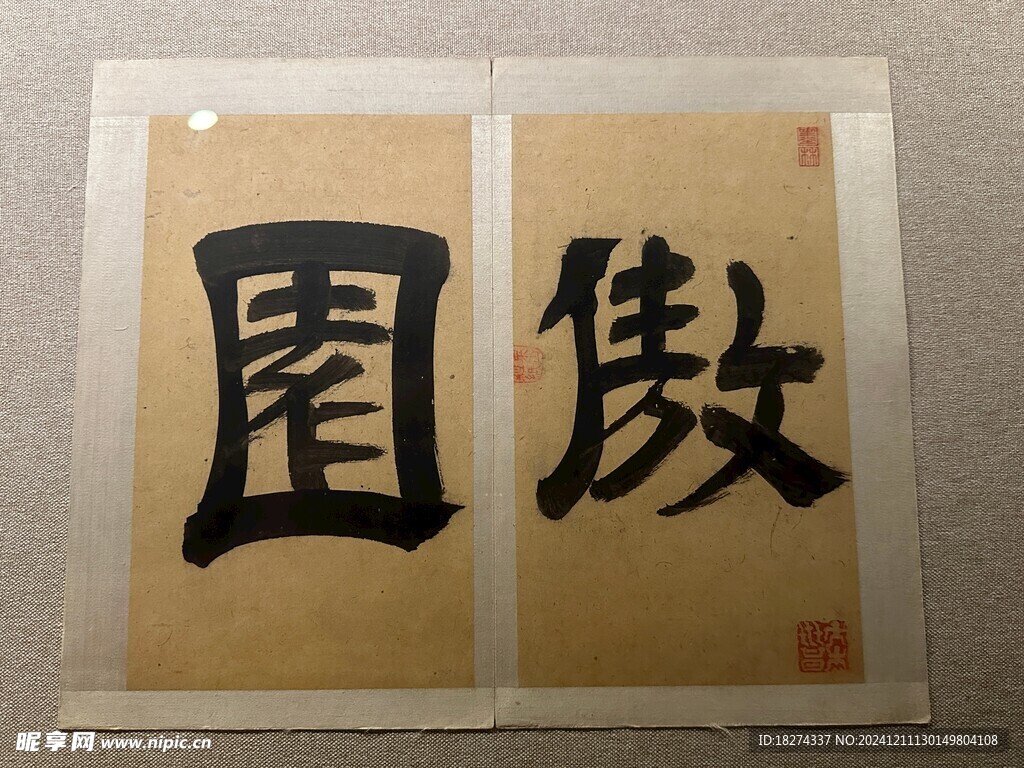 傲園
墨林
昵享网 www.nipic.cn
ID:18274337 NO:20241211130149804108